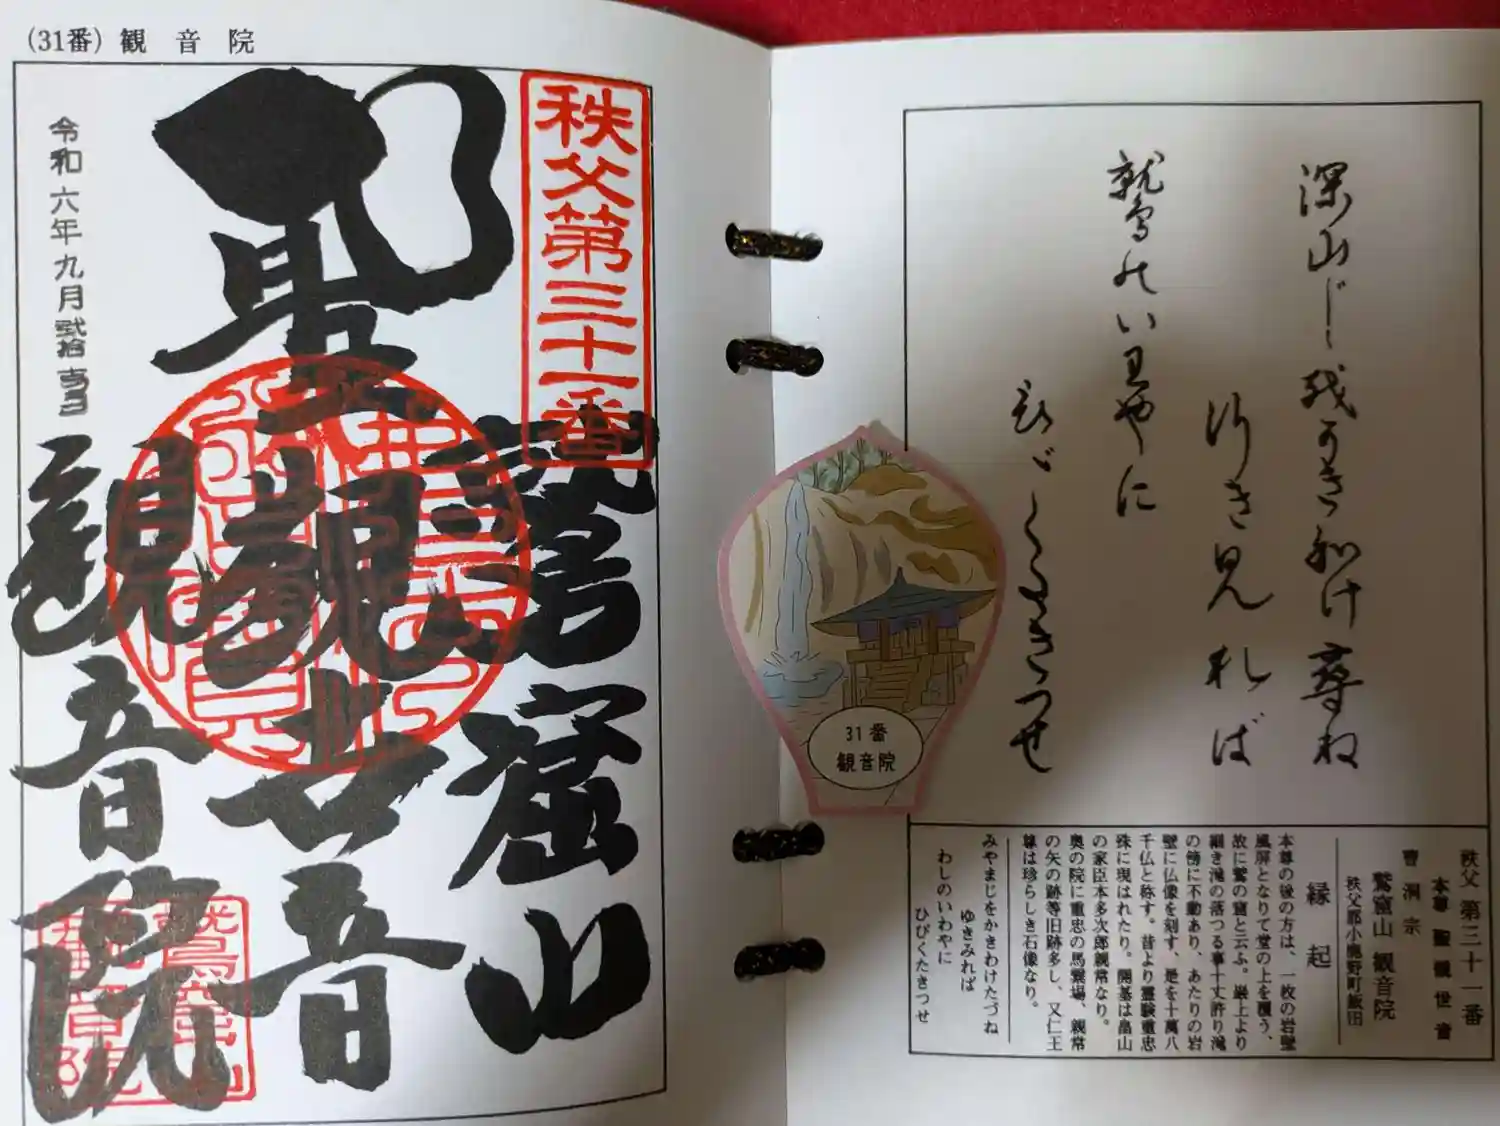 (31番) 観音院
秩父第三十一番
鷲窟山
聖観世音
観音院
令和六年九月弐拾壱日
深山じを かき和け尋ね
行き見れば
鷲のいわやに
ひゞくたきつせ
31番
観音院
秩父 第三十一番
本尊 聖観世音
曹洞宗
鷲窟山 観音院
秩父郡小鹿野町飯田
縁起
本尊の後の方は、一枚の岩壁
風屏となりて堂の上を覆う、
故に鷲の窟と云ふ。巌上より
細き滝の落つる事十丈許り滝
の傍に不動あり、あたりの岩
壁に仏像を刻す、是を十萬八
千仏と称す。昔より霊験重忠
殊に現はれたり。開基は畠山
の家臣本多次郎親常なり。
奥の院に重忠の馬繋場、親常
の矢の跡等旧跡多し、又仁王
尊は珍らしき石像なり。
みやまじをかきわけたづね
ゆきみれば
わしのいわやに
ひびくたきつせ